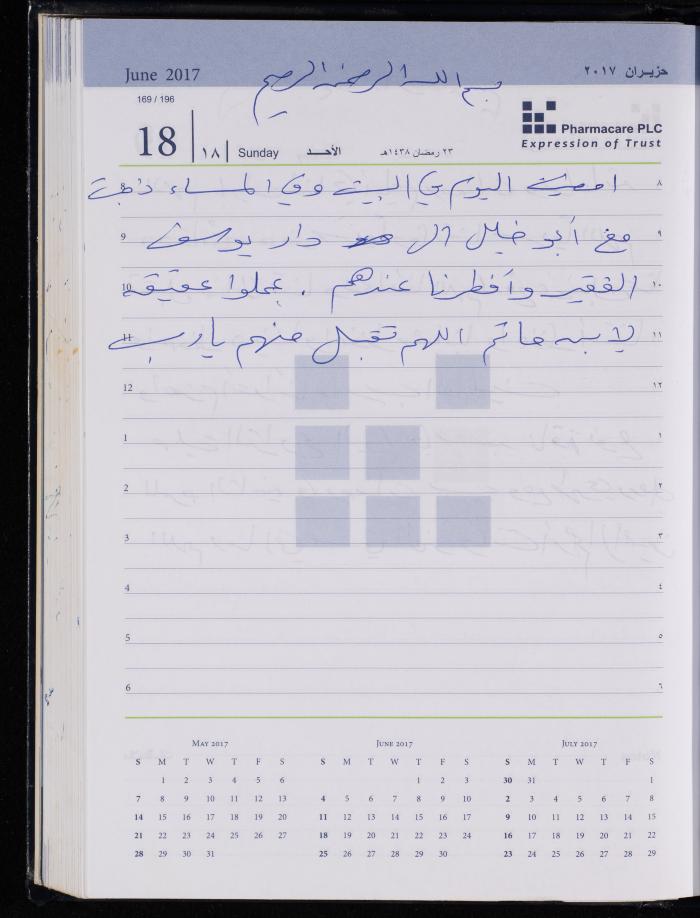 June 2017
بسم الله الرحمن الرحيم
حزيران ٢٠١٧
169 / 196
18 | ١٨ | Sunday الأحـــد ٢٣ رمضان ١٤٣٨هـ
Pharmacare PLC
Expression of Trust
8 امضيت اليوم في البيت وفي المساء ذهبت ٨
9 مع أبو خليل الى دار يوسف ٩
10 الفقير وأفطرنا عندهم . عملوا عقيقه ١٠
11 لابنه حاتم اللهم تقبل منهم يارب ١١
12 ١٢
1 ١
2 ٢
3 ٣
4 ٤
5 ٥
6 ٦
MAY 2017
S M T W T F S
1 2 3 4 5 6
7 8 9 10 11 12 13
14 15 16 17 18 19 20
21 22 23 24 25 26 27
28 29 30 31
JUNE 2017
S M T W T F S
1 2 3
4 5 6 7 8 9 10
11 12 13 14 15 16 17
18 19 20 21 22 23 24
25 26 27 28 29 30
JULY 2017
S M T W T F S
30 31 1
2 3 4 5 6 7 8
9 10 11 12 13 14 15
16 17 18 19 20 21 22
23 24 25 26 27 28 29